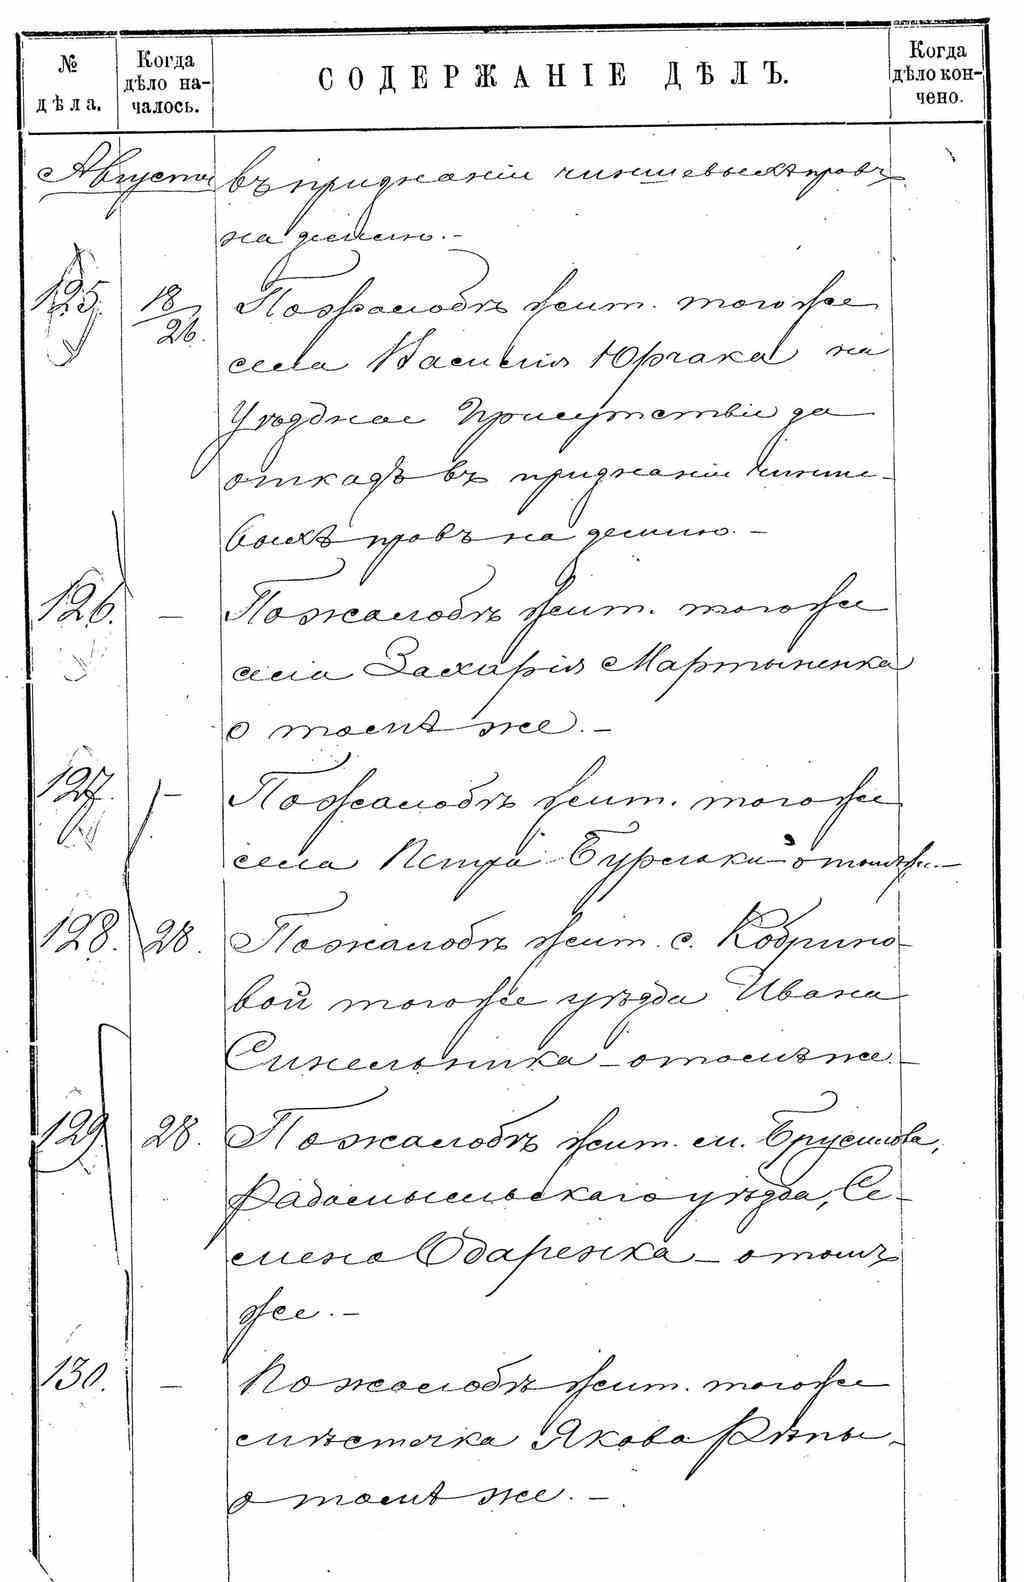 № дѣла.
Когда дѣло началось.
СОДЕРЖАНІЕ ДѢЛЪ.
Когда дѣло кончено.
Августа въ признаніи чиншевыхъ правъ
на землю.–
125. 18/26. По жалобѣ жит. того же
села Василія Юрчака на
Уѣздное Присутствіе за
отказъ въ признаніи чинше-
выхъ правъ на землю.–
126. – По жалобѣ жит. того же
села Захарія Мартыненка
о томъ же.–
127. – По жалобѣ жит. того же
села Петра Бурлаки о томъ же.–
128. 28. По жалобѣ жит. с. Кобрино-
вой того же уѣзда Ивана
Синельника – о томъ же.–
129. 28. По жалобѣ жит. м. Брусилова,
Радомысльскаго уѣзда, Се-
мена Одаренка – о томъ
же.–
130. – По жалобѣ жит. того же
мѣстечка Якова Рѣпы –
о томъ же.–